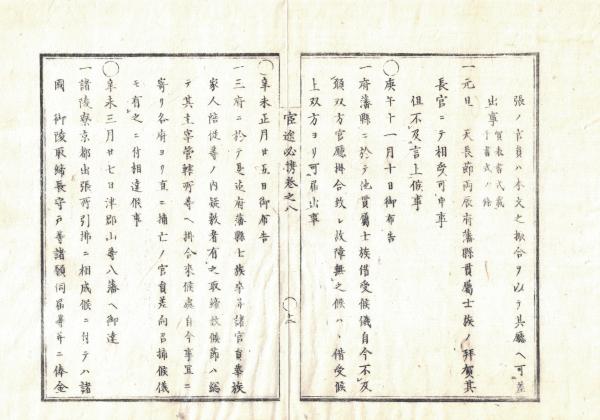 張ノ官員ハ本文之振合ヲ以テ其廳ヘ可差
出事
一元旦 天長節両度府藩縣貫属士族ノ拜賀其
長官ニテ相受可申事
但不及言上候事
○庚午十一月十日御布告
一府藩縣ニ於テ他貫属士族借受候儀自今不及
願双方官廳掛合致シ故障無之候ハヽ借受候
上双方ヨリ可届出事
官途必携巻之八
○辛未正月廿五日御布告
一三府ニ於テ是迄府藩縣士族卒并諸官員華族
家人陪従等ノ内
者有之取締
候節ハ総
テ其主宰管轄所等ヘ掛合来候處自今事宜ニ
寄リ各府ヨリ直ニ捕亡ノ官員差向召捕候儀
モ有之ニ付相達候事
○辛未三月廿七日津郡山等八藩ヘ御達
一諸陵寮京都出張所引拂ニ相成候ニ付テハ諸
國 御陵取締長守戸等諸願伺届等并ニ俸金